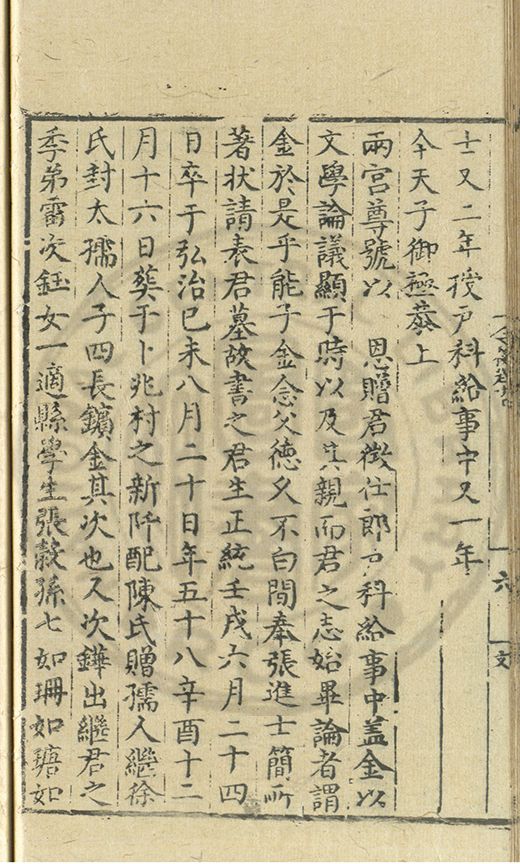 士又二年授戶科給事中又一年
今天子御極恭上
兩宮尊號以 恩贈君徵仕郎戶科給事中蓋金以
文學論議顯于時以及其親而君之志始畢論者謂
金於是乎能子金念父德久不白間奉張進士簡所
著狀請表君墓故書之君生正統壬戌六月二十四
日卒于弘治己未八月二十日年五十八辛酉十二
月十六日葬于卜兆村之新阡配陳氏贈孺人繼徐
氏封太孺人子四長鑌金其次也又次鏵出繼君之
季弟雷次鈺女一適縣學生張穀孫七如珊如瑭如
六
文